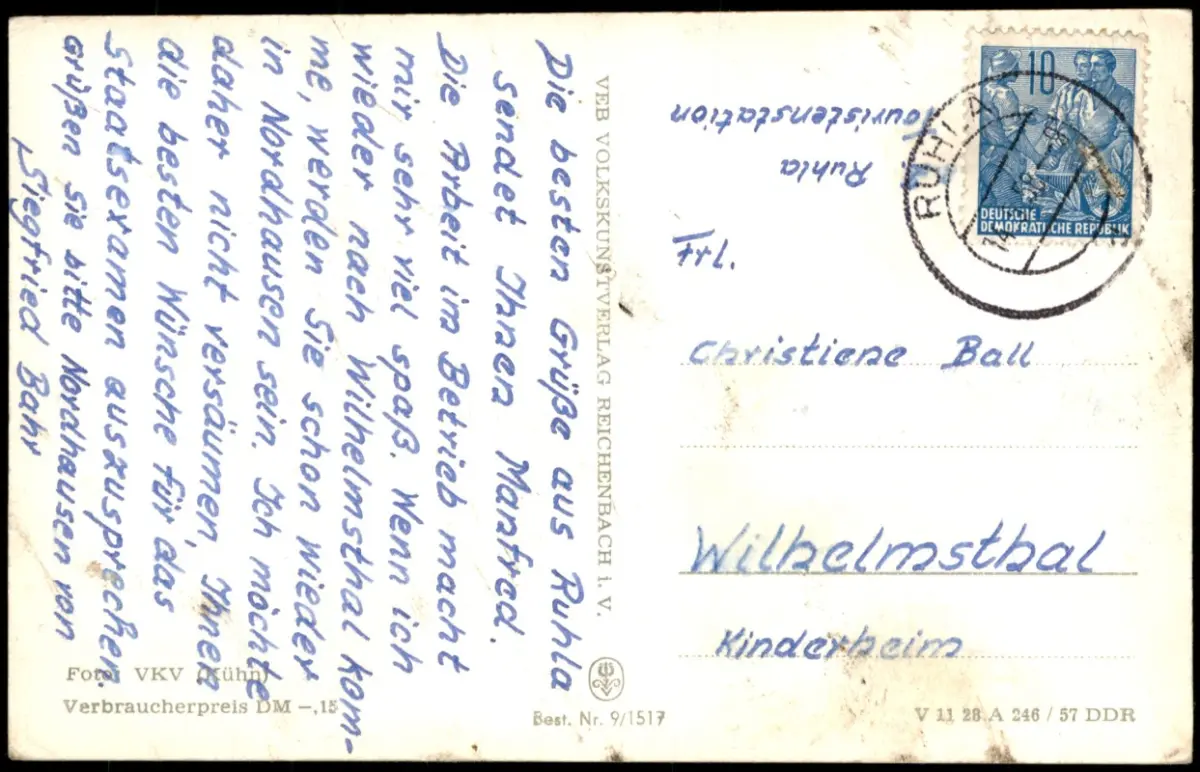 Die besten Grüße aus Ruhla
sendet Ihnen Manfred.
Die Arbeit im Betrieb macht
mir sehr viel spaß. Wenn ich
wieder nach Wilhelmsthal kom-
me, werden Sie schon wieder
in Nordhausen sein. Ich möchte
daher nicht versäumen Ihnen
die besten Wünsche für das
Staatsexamen auszusprechen.
Grüßen sie bitte Nordhausen von
Siegfried Bahr
Foto: VKV (Kühn)
Verbraucherpreis DM –,15
VEB VOLKSKUNSTVERLAG REICHENBACH i. V.
Best. Nr. 9/1517
Ruhla
Touristenstation
10
DEUTSCHE
DEMOKRATISCHE REPUBLIK
RUHLA
Frl.
Christiene Ball
Wilhelmsthal
Kinderheim
V 11 28 A 246 / 57 DDR